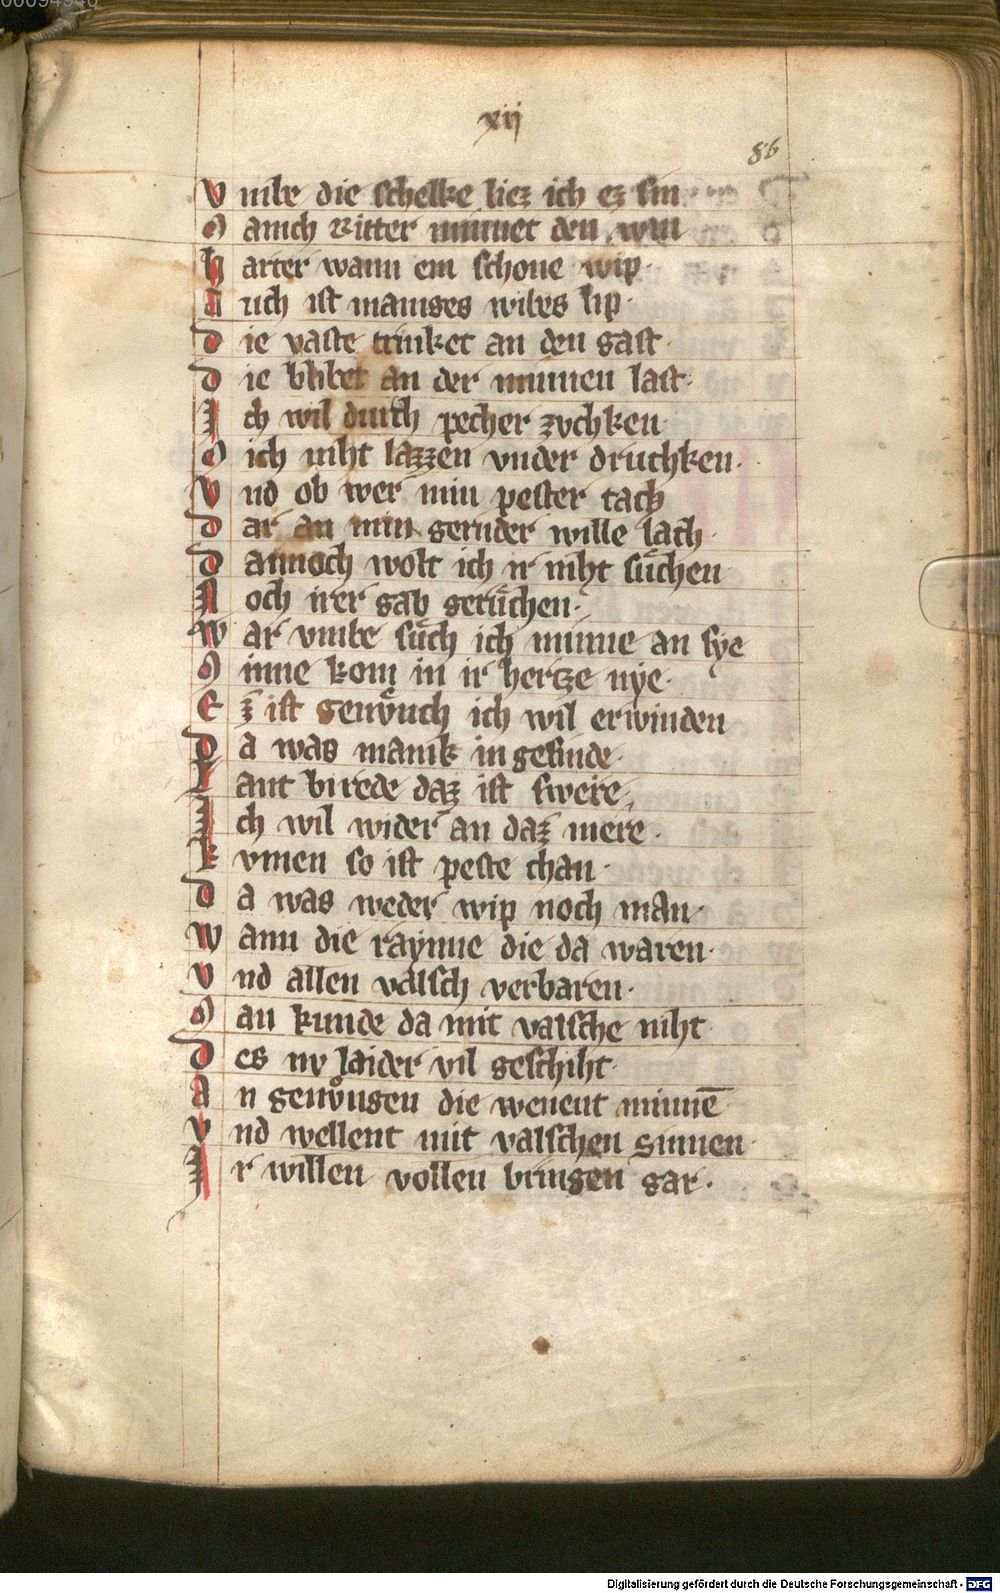 00094940
xij
86
Vmbe die schelke liez ich ez sin
Manich Ritter minnet den win
Harter wann ein schone wip.
Auch ist maniges wibes lip.
Die vaste trinket an den gast.
Die blibet an der minnen last.
Ich wil durch pecher zvchken.
Mich niht lazzen vnder druchken.
Vnd ob wer min pester tach
Dar an min gernder wille lach.
Dannoch wolt ich ir niht suͤchen
Noch irer gab geruͤchen.
War vmbe suͤch ich minne an sye
Minne kom in ir hertze nye.
Ez ist genvͦch ich wil erwinden
Da was manik in gesinde.
Lant bi rede daz ist swere.
Ich wil wider an daz mere.
Kvmen so ist peste chan.
Da was weder wip noch man.
Wann die raynne die da waren.
Vnd allen valsch verbaren.
Man kunde da mit valsche niht
Des nv laider vil geschiht.
An genvͦgen die wenent minnē
Vnd wellent mit valschen sinnen.
Ir willen vollen bringen gar.
Digitalisierung gefördert durch die Deutsche Forschungsgemeinschaft - DFG